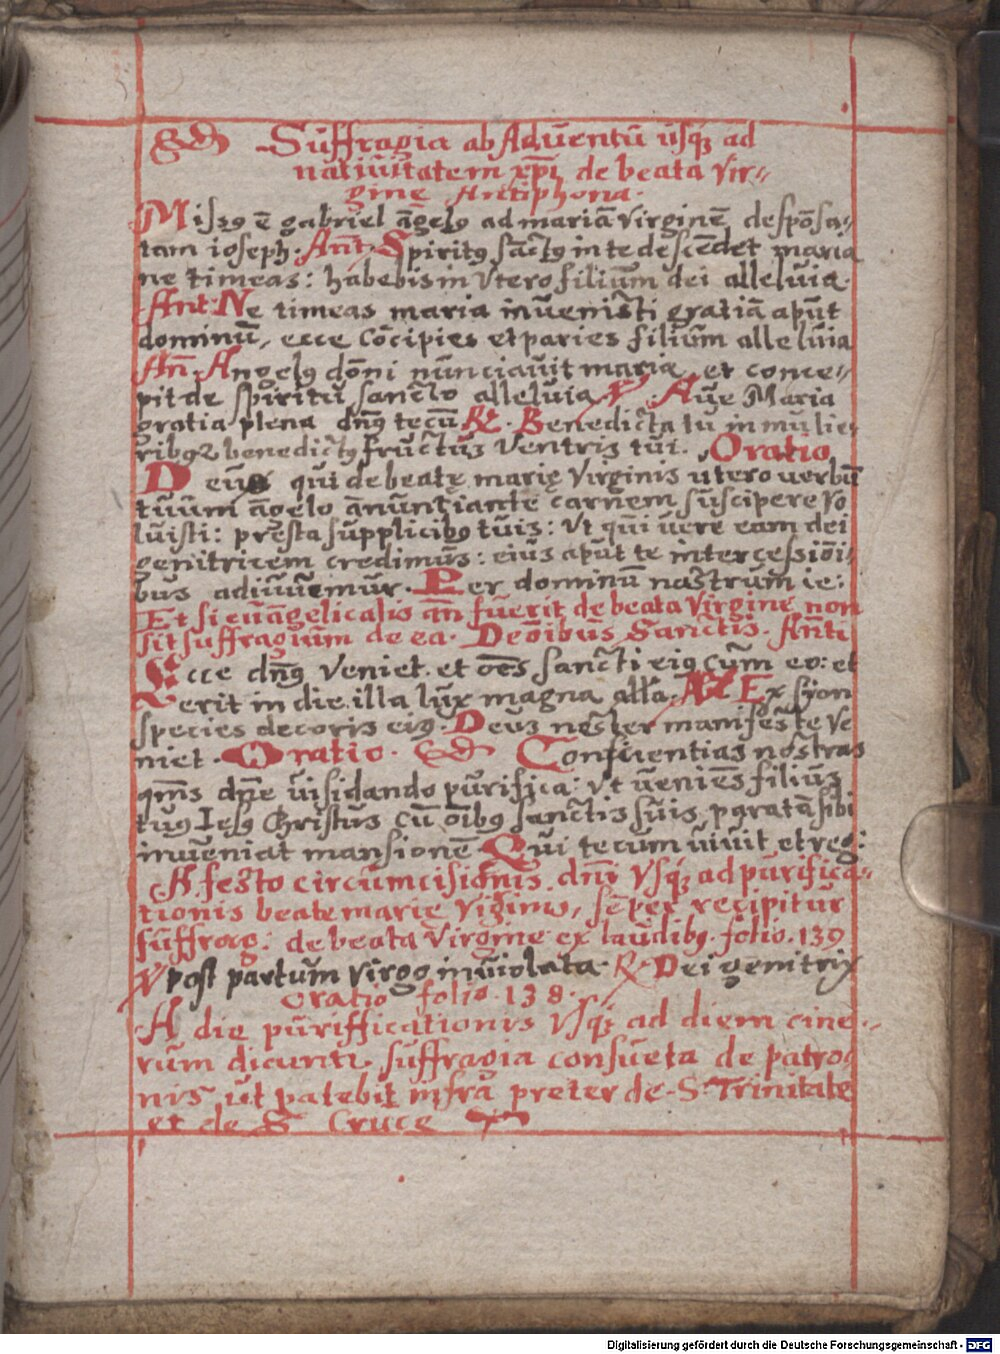 Suffragia ab Aduentū usq3 ad
natiuitatem xp̄i de beata Vir-
gine Antiphona.
Missꝰ ē gabriel āgelꝰ ad mariā virginē despōsa-
tam ioseph. Ant. Spiritꝰ sāctꝰ in te descēdet maria
ne timeas: habebis in vtero filium dei alleluia.
Ant. Ne timeas maria inuenisti gratiā aput
dominū, ecce cōcipies et paries filium alleluia
An̄. Angelꝰ dōni nunciauit marię et conce-
pit de spiritu sancto alleluia ℣. Aue Maria
gratia plena dn̄s tecū ℟. Benedicta tu in mulie-
ribꝰ et benedictꝰ fructus ventris tui. Oratio
Deus qui de beatę marię virginis utero uerbū
tuum āgelo anuntiante carnem suscipere vo-
luisti: presta supplicibꝰ tuis: vt qui uere eam dei
genitricem credimus: eius aput te intercessiōi-
bus adiuuemur. Per dominū nostrum ie:
Et si euāgelicalis an̄ fuerit de beata Virgine non
sit suffragium de ea. De oībus Sanctis. Anti
Ecce dn̄s veniet. et oēs sancti eiꝰ cum eo: et
erit in die illa lux magna all'a. ℣ Ex syon
species decoris eiꝰ. Deus noster manifeste ve
niet. Oratio. Conscientias nostras
qm̄s dn̄e uisidando purifica: vt ueniēs filius
tuꝰ Iesꝰ Christus cū oībꝰ sanctis suis, paratā sibi
inueniat mansionē. Qui tecum uiuit et reg:
A festo circumcisionis dn̄i vsq3 ad purifica-
tionis beate marię viginis, sēper recipitur
suffrag: de beata Virgine ex laudibꝰ. folio. 139
℣ post partum virgo inuiolata. ℟ Dei genitrix
oratio folio. 138.
A die purifficationis vsq3 ad diem cine-
rum dicunti suffragia consueta de patro-
nis ut patebit infra preter de S. Trinitate
et de S. Cruce
Digitalisierung gefördert durch die Deutsche Forschungsgemeinschaft - DFG